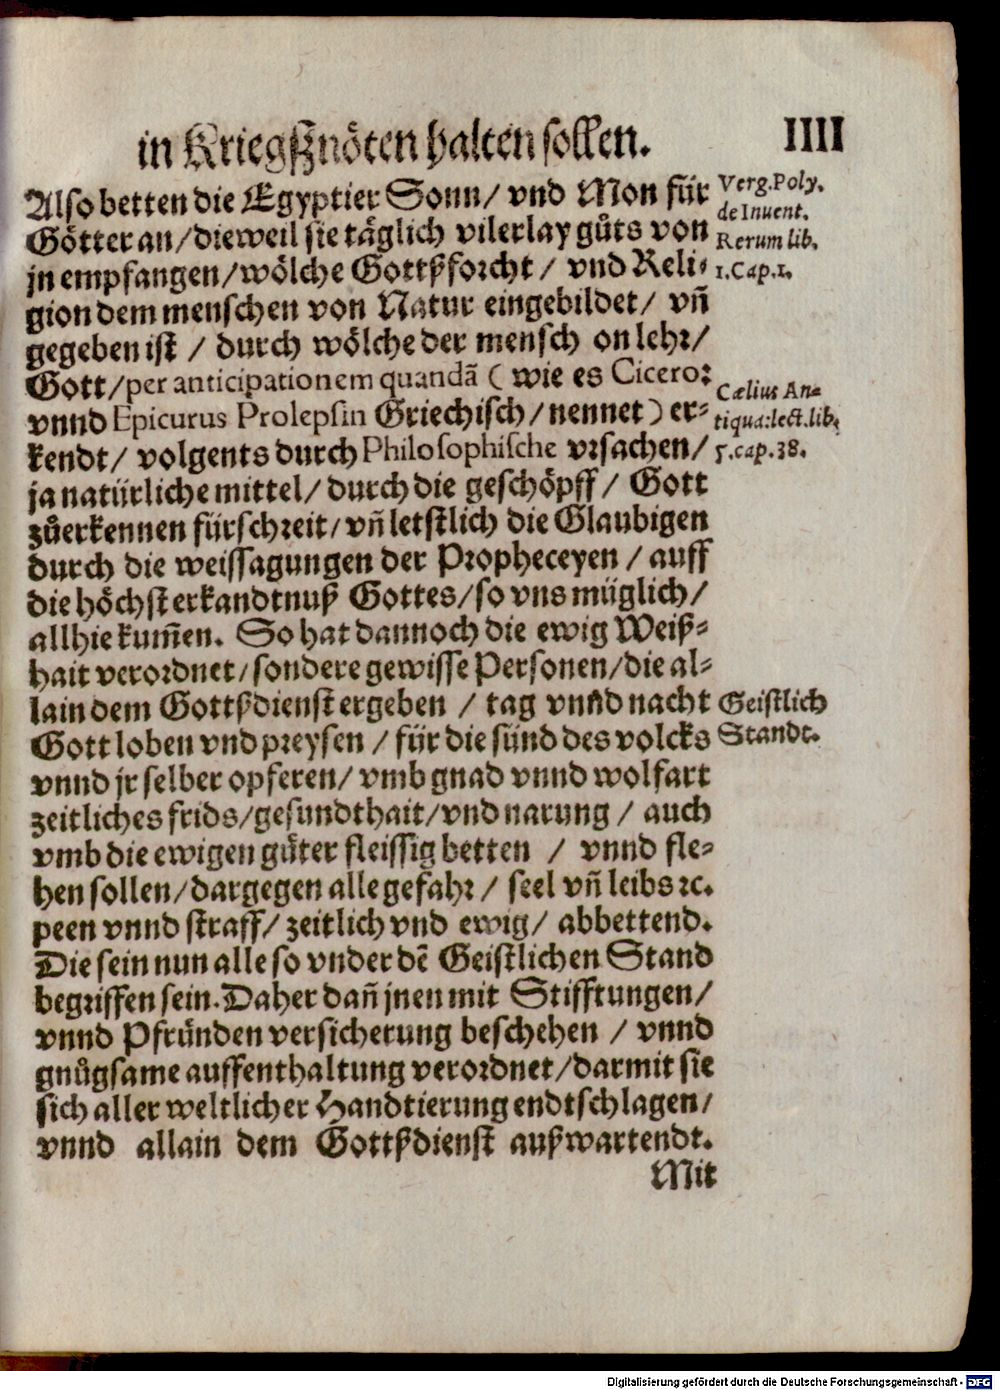 in Kriegßnöten halten sollen. IIII
Also betten die Egyptier Sonn/ vnd Mon für
Götter an/dieweil sie täglich vilerlay gůts von
jn empfangen/wölche Gottßforcht / vnd Reli-
gion dem menschen von Natur eingebildet/ vñ
gegeben ist / durch wölche der mensch on lehr/
Gott/per anticipationem quandã ( wie es Cicero:
vnnd Epicurus Prolepsin Griechisch/nennet) er-
kendt/ volgents durch Philosophische vrsachen/
ja natürliche mittel/durch die geschöpff/ Gott
zůerkennen fürschreit/vñ letstlich die Glaubigen
durch die weissagungen der Propheceyen / auff
die höchst erkandtnuß Gottes/so vns müglich/
allhie kum̃en. So hat dannoch die ewig Weiß-
hait verordnet/sondere gewisse Personen/die al-
lain dem Gottßdienst ergeben / tag vnnd nacht
Gott loben vnd preysen / für die sünd des volcks
vnnd jr selber opferen/ vmb gnad vnnd wolfart
zeitliches frids/gesundthait/vnd narung / auch
vmb die ewigen güter fleissig betten / vnnd fle-
hen sollen/dargegen alle gefahr / seel vñ leibs ꝛc.
peen vnnd straff/ zeitlich vnd ewig/ abbettend.
Die sein nun alle so vnder dẽ Geistlichen Stand
begriffen sein. Daher dañ jnen mit Stifftungen/
vnnd Pfründen versicherung beschehen / vnnd
gnůgsame auffenthaltung verordnet/darmit sie
sich aller weltlicher Handtierung endtschlagen/
vnnd allain dem Gottßdienst außwartendt.
Mit
Verg. Poly.
de Inuent.
Rerum lib.
1. Cap. 1.
Cælius An-
tiqua: lect. lib.
5. cap. 38.
Geistlich
Standt.
Digitalisierung gefördert durch die Deutsche Forschungsgemeinschaft - DFG